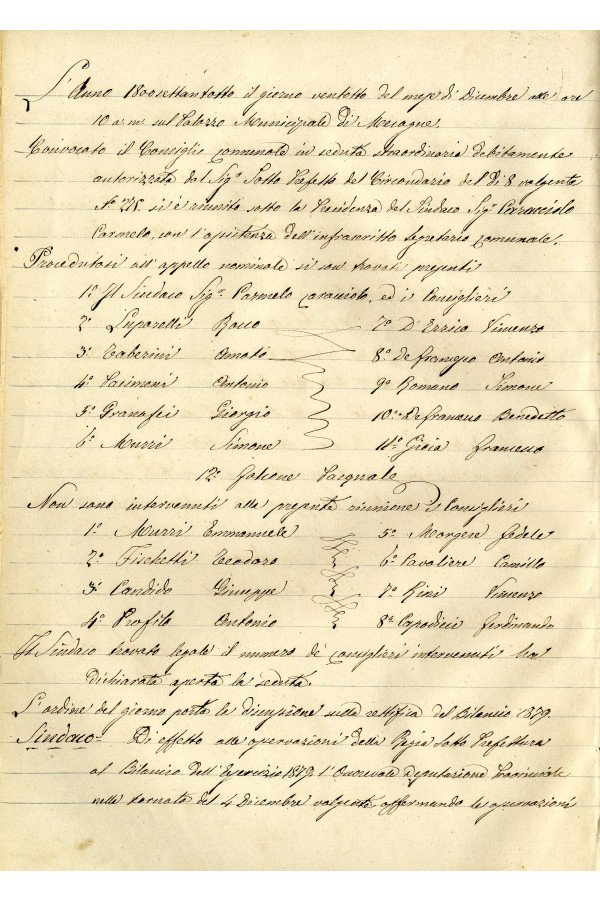 L'Anno 1800settantotto il giorno ventotto del mese di Dicembre alle ore
10 a. m. sul Palazzo Municipale di Mesagne.
Convocato il Consiglio comunale in seduta straordinaria debitamente
autorizzata dal Sig.r Sotto Prefetto del Circondario del dì 8 volgente
N.° si è riunito sotto la Presidenza del Sindaco Sig.r Caracciolo
Carmelo, con l'assistenza dell'infrascritto Segretario comunale.
Procedutosi all'appello nominale si son trovati presenti
1.° Il Sindaco Sig.r Carmelo Caracciolo, ed i Consiglieri
2.° Luparelli Rocco 7.° D'Errico Vincenzo
3.° Taberini Amato 8.° de francesco Antonio
4.° Pacimoni Antonio 9.° Romano Simone
5.° Granafei Giorgio 10.° De francesco Benedetto
6.° Murri Simone 11.° Gioia francesco
12.° Falcone Pasquale
Non sono intervenuti alla presente riunione i Consiglieri
1.° Murri Emmanuele 5.° Morgese fedele
2.° Fischetti Teodoro 6.° Cavaliere Camillo
3.° Candido Giuseppe 7.° Rini Vincenzo
4.° Profilo Antonio 8.° Capodieci ferdinando
Il Sindaco trovato legale il numero de' consiglieri intervenuti ha
dichiarata aperta la seduta.
L'ordine del giorno porta la discussione sulla rettifica del Bilancio 1879.
Sindaco = Di effetto alle osservazioni della Regia Sotto Prefettura
al Bilancio dell'Esercizio 1879, l'Onorevole Deputazione Provinciale
nella tornata del 4 Dicembre volgente, affermando le osservazioni